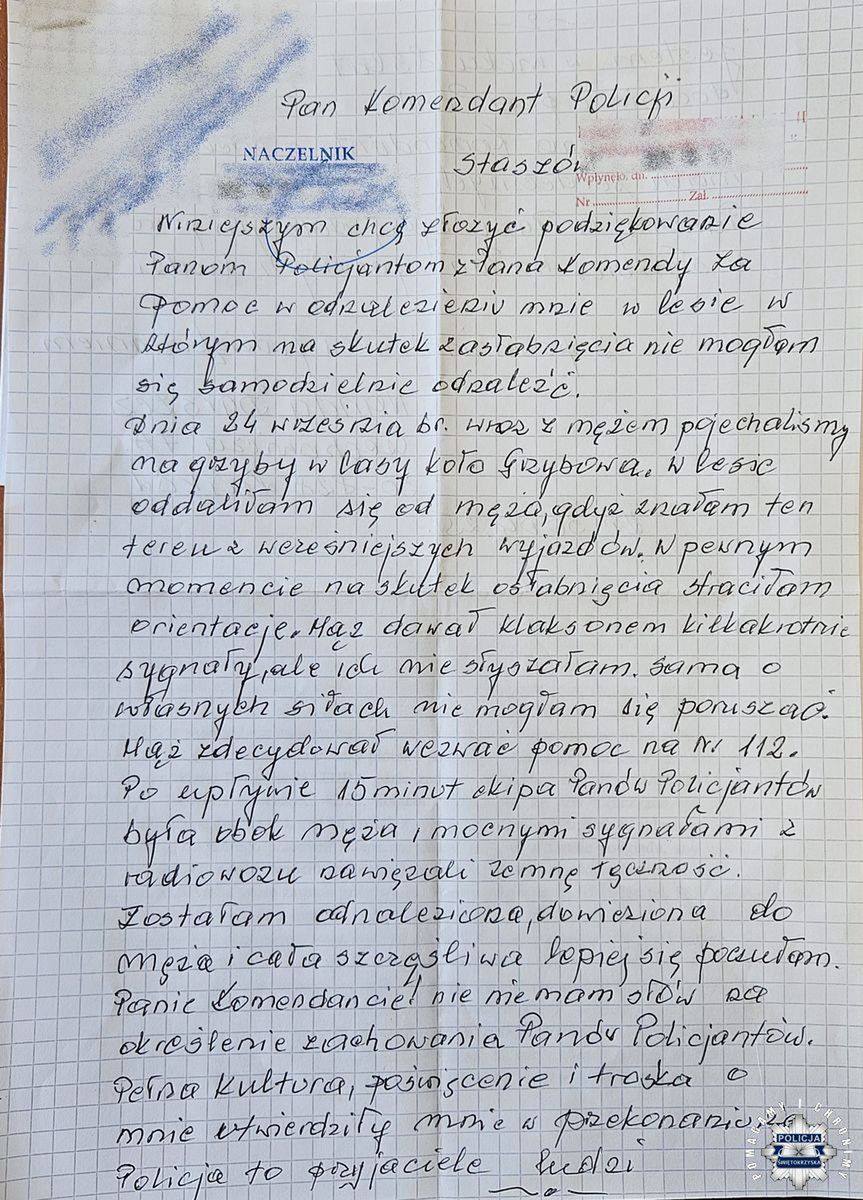 Pan Komendant Policji
NACZELNIK
Staszów
Wpłynęło, dn.
Nr Zał.
Niniejszym chcę złożyć podziękowanie
Panom Policjantom z Pana Komendy za
pomoc w odnalezieniu mnie w lesie w
którym na skutek zasłabnięcia nie mogłam
się samodzielnie odnaleźć.
Dnia 24 września br. wraz z mężem pojechalismy
na grzyby w lasy koło Grzybowa. W lesie
oddaliłam się od męża, gdyż znałam ten
teren z wcześniejszych wyjazdów. W pewnym
momencie na skutek osłabnięcia straciłam
orientację. Mąż dawał klaksonem kilkakrotnie
sygnały, ale ich nie słyszałam. Sama o
własnych siłach nie mogłam się poruszać.
Mąż zdecydował wezwać pomoc na nr 112.
Po upływie 15 minut ekipa Panów Policjantów
była obok męża i mocnymi sygnałami z
radiowozu nawiązali zemną łączność.
Zostałam odnaleziona, dowieziona do
męża i cała szczęśliwa lepiej się poczułam.
Panie Komendancie! nie mam słów na
określenie zachowania Panów Policjantów.
Pełna kultura, poświęcenie i troska o
mnie utwierdziły mnie w przekonaniu, że
Policja to przyjaciele ludzi
POMAGAMY I CHRONIMY
POLICJA
ŚWIĘTOKRZYSKA